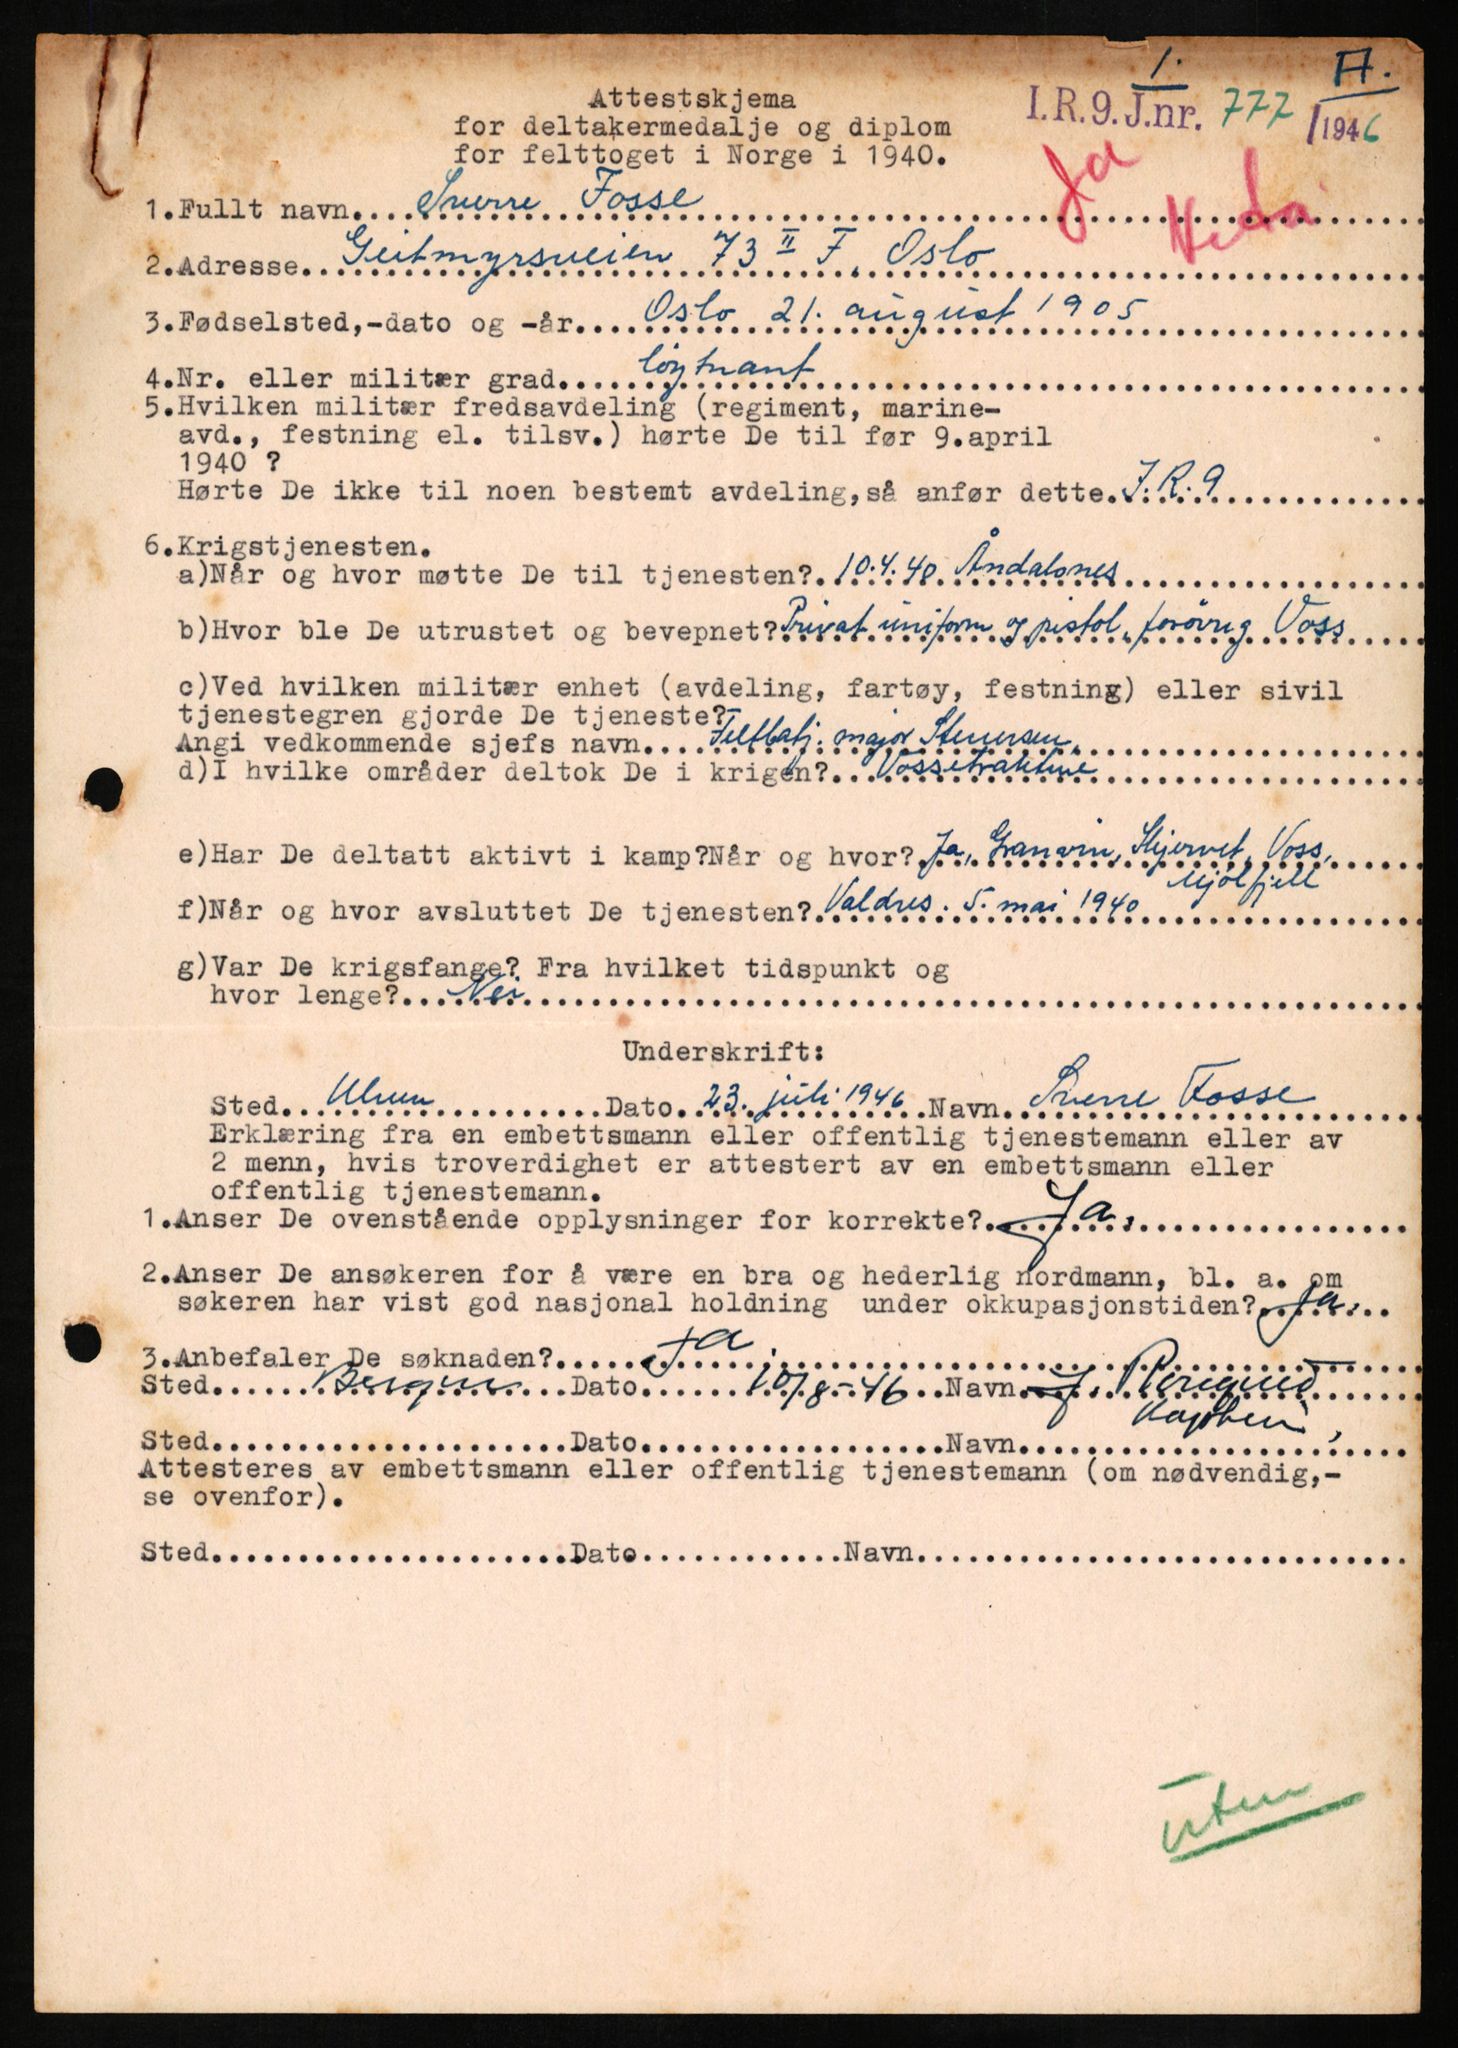 1.
A.
I.R.9. J.nr. 777 /1946
Attestskjema
for deltakermedalje og diplom
for felttoget i Norge i 1940.
Ja
1.Fullt navn....Sverre Fosse
2.Adresse...Geitmyrsveien 73 II F, Oslo
3.Fødselsted,-dato og -år....Oslo 21. august 1905
4.Nr. eller militær grad....löytnant
5.Hvilken militær fredsavdeling (regiment, marine-
avd., festning el. tilsv.) hørte De til før 9.april
1940 ?
Hørte De ikke til noen bestemt avdeling,så anfør dette.J.R.9
6.Krigstjenesten.
a)Når og hvor møtte De til tjenesten?.10.4.40 Åndalsnes
b)Hvor ble De utrustet og bevepnet?.Privat uniform og pistol, forövrig Voss
c)Ved hvilken militær enhet (avdeling, fartøy, festning) eller sivil
tjenestegren gjorde De tjeneste?
Angi vedkommende sjefs navn....Feltbatj. major Stenersen,
d)I hvilke områder deltok De i krigen?...Vossetraktene
e)Har De deltatt aktivt i kamp?Når og hvor?.Ja, Granvin, Skjervet, Voss,
Mjölfjell
f)Når og hvor avsluttet De tjenesten?.Valdres. 5. mai 1940
g)Var De krigsfange? Fra hvilket tidspunkt og
hvor lenge?....Nei
Underskrift:
Sted...Ulven...Dato.23. juli 1946 Navn Sverre Fosse
Erklæring fra en embettsmann eller offentlig tjenestemann eller av
2 menn, hvis troverdighet er attestert av en embettsmann eller
offentlig tjenestemann.
1.Anser De ovenstående opplysninger for korrekte?...Ja.
2.Anser De ansøkeren for å være en bra og hederlig nordmann, bl. a. om
søkeren har vist god nasjonal holdning under okkupasjonstiden?..Ja.
3.Anbefaler De søknaden?.....Ja.
Sted....Bergen....Dato....10/8-46..Navn.
Kaptein,
Sted....................Dato.................Navn....................
Attesteres av embettsmann eller offentlig tjenestemann (om nødvendig,-
se ovenfor).
Sted....................Dato............Navn.........................
Uten